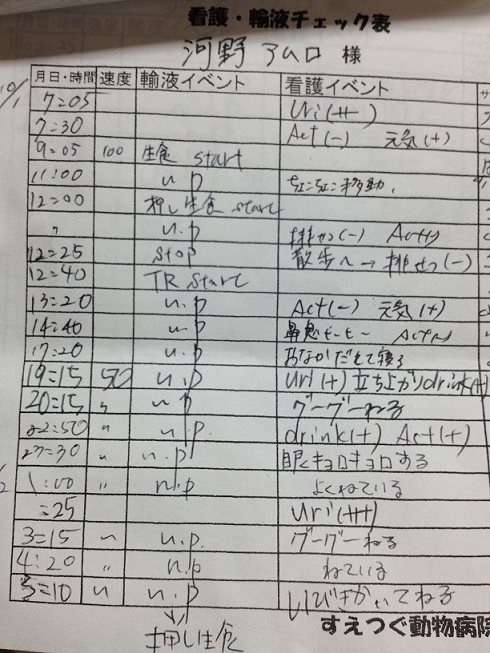 看護・輸液チェック表
河野 アムロ 様
月日・時間 速度 輸液イベント 看護イベント
10/1 7:05 Uri(++)
7:30 Act(-) 元気(+)
9:05 100 生食 start
11:00 n.p ちょこちょこ移動、
12:00 押し生食 start
〃 n.p 排せつ(-) Act(+)
12:25 stop 散歩へ→排せつ(-)
12:40 TR start
13:20 n.p Act(-) 元気(+)
14:40 n.p 鼻息 Act
17:20 n.p おなかだして寝る
19:15 50 n.p Uri(+) 立ち上がり drink(+)
20:15 〃 n.p グーグーねる
22:50 〃 n.p. drink(+) Act(+)
23:30 〃 n.p. 眼キョロキョロする
1:00 〃 n.p よくねている
:25 Uri(+++)
3:15 〃 n.p. グーグーねる
4:20 〃 n.p ねている
5:10 〃 n.p いびきかいてねる
押し生食
すえつぐ動物病院